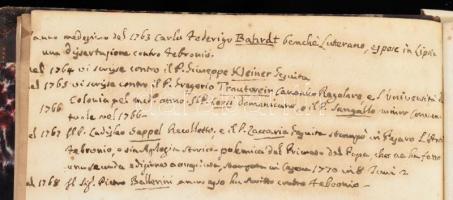 anno medesimo del 1763 Carlo Federigo Bahrdt benchè Luterano, espose in Lipsia
una dissertazione contro Febronio.
nel 1764 vi scrisse contro il P. Giuseppe Kleiner Gesuita
nel 1765 vi scrisse contro il P. Gregorio Trautwein Canonico Regolare, e l'Università di
Colonia nel med. anno, il P. Corsi domenicano, e il P. Sangallo minor Conven-
1766 tuale nel 1766.
nel 1767 il P. Ladislao Sappel Recolletto, e il P. Zaccaria Gesuita stampò in Pesaro l'Anti
Febronio, o sia Apologia Storico-polemica del Primato del Papa, che ne ha fatto
una seconda edizione in Cesena 1770 in 8 Tomi 2
nel 1768 Il Sig. Pietro Ballerini anch'esso ha scritto contro Febronio.